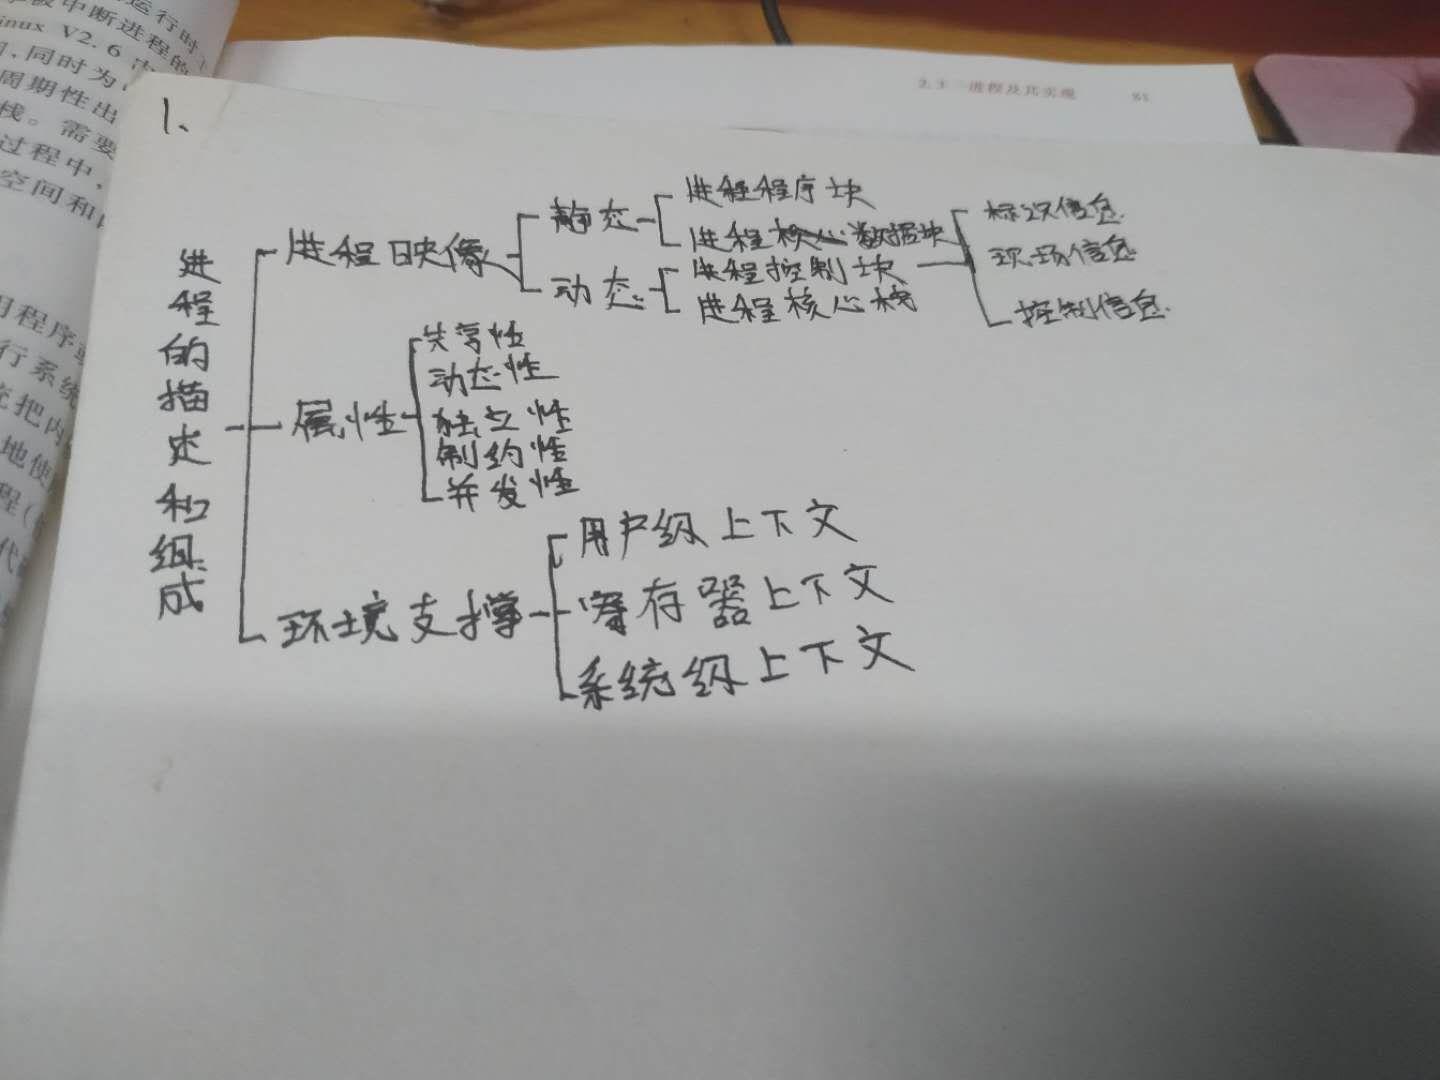 运行时
被中断进程的
inux V2.6
同时为
周期性出
栈。需要
过程中，
空间和
用程序
行系统
把内
地使
程(
代
2.3 进程及其实现 51
1.
进程的描述和组成
进程映像
静态
进程程序块
进程数据块
动态
进程控制块
标识信息
现场信息
控制信息
进程核心栈
属性
共享性
动态性
独立性
制约性
并发性
环境支撑
用户级上下文
寄存器上下文
系统级上下文